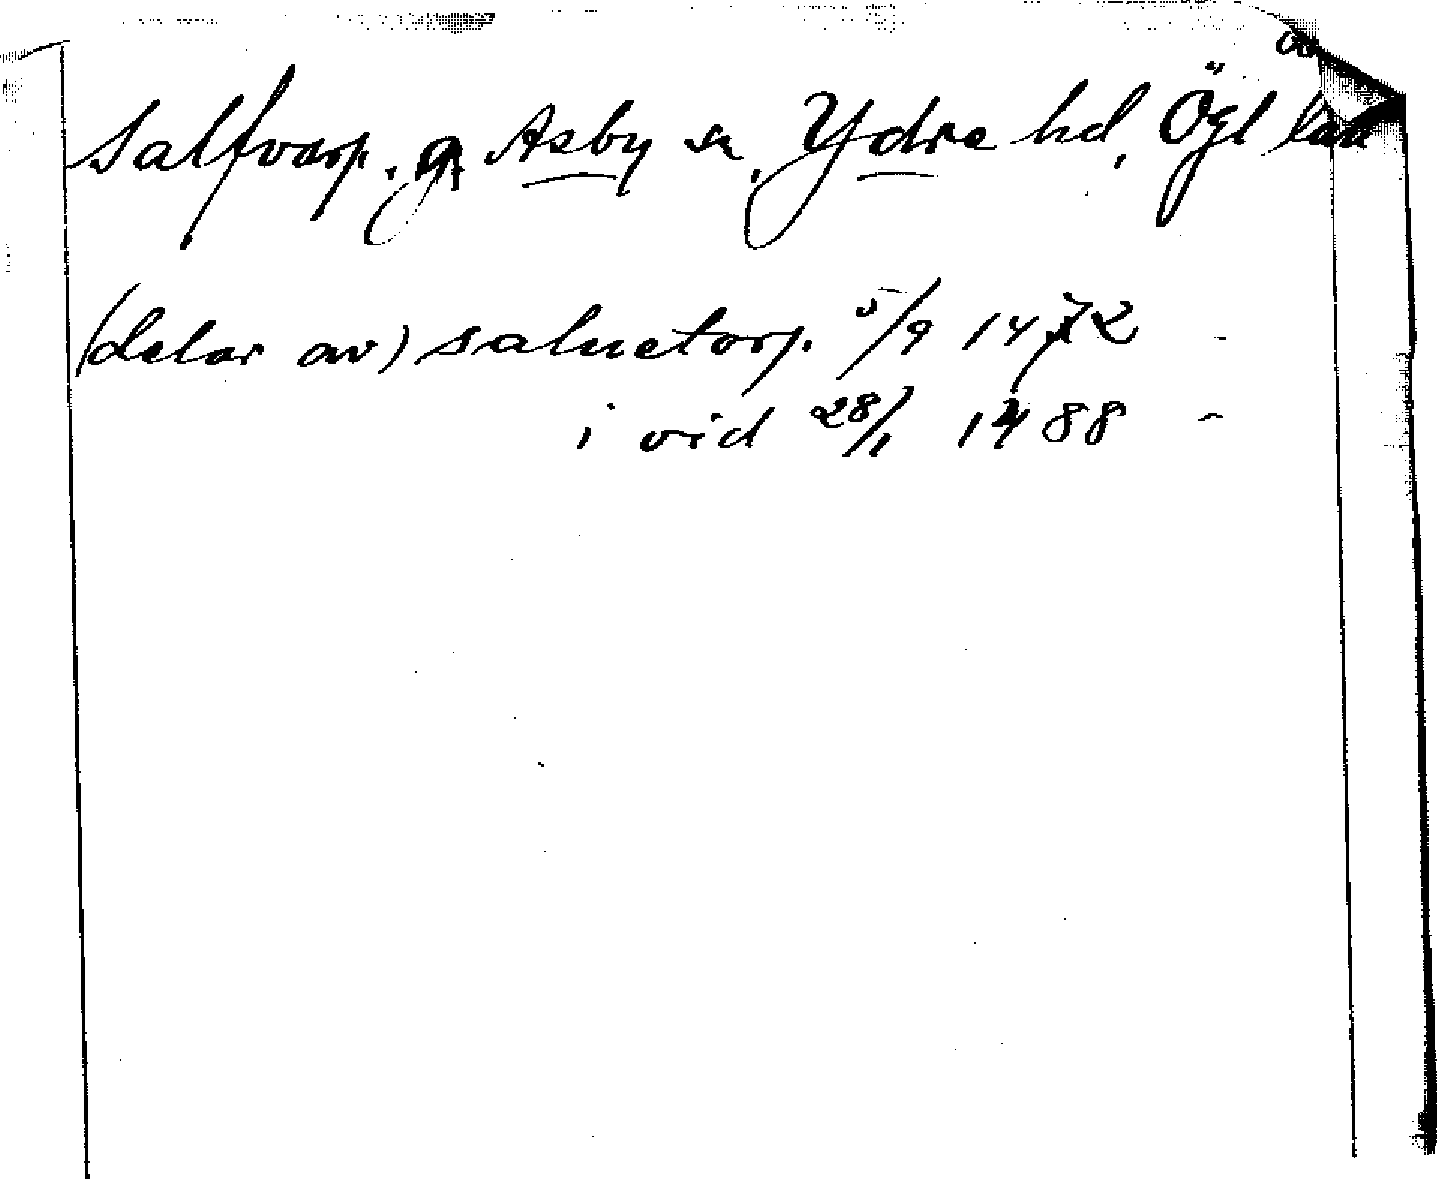 Salfvarp. g, Asby sn, Ydre hd, Ögl län
(delar av) saluetorp. 5/9 1472 -
i vid 28/1 1488 -